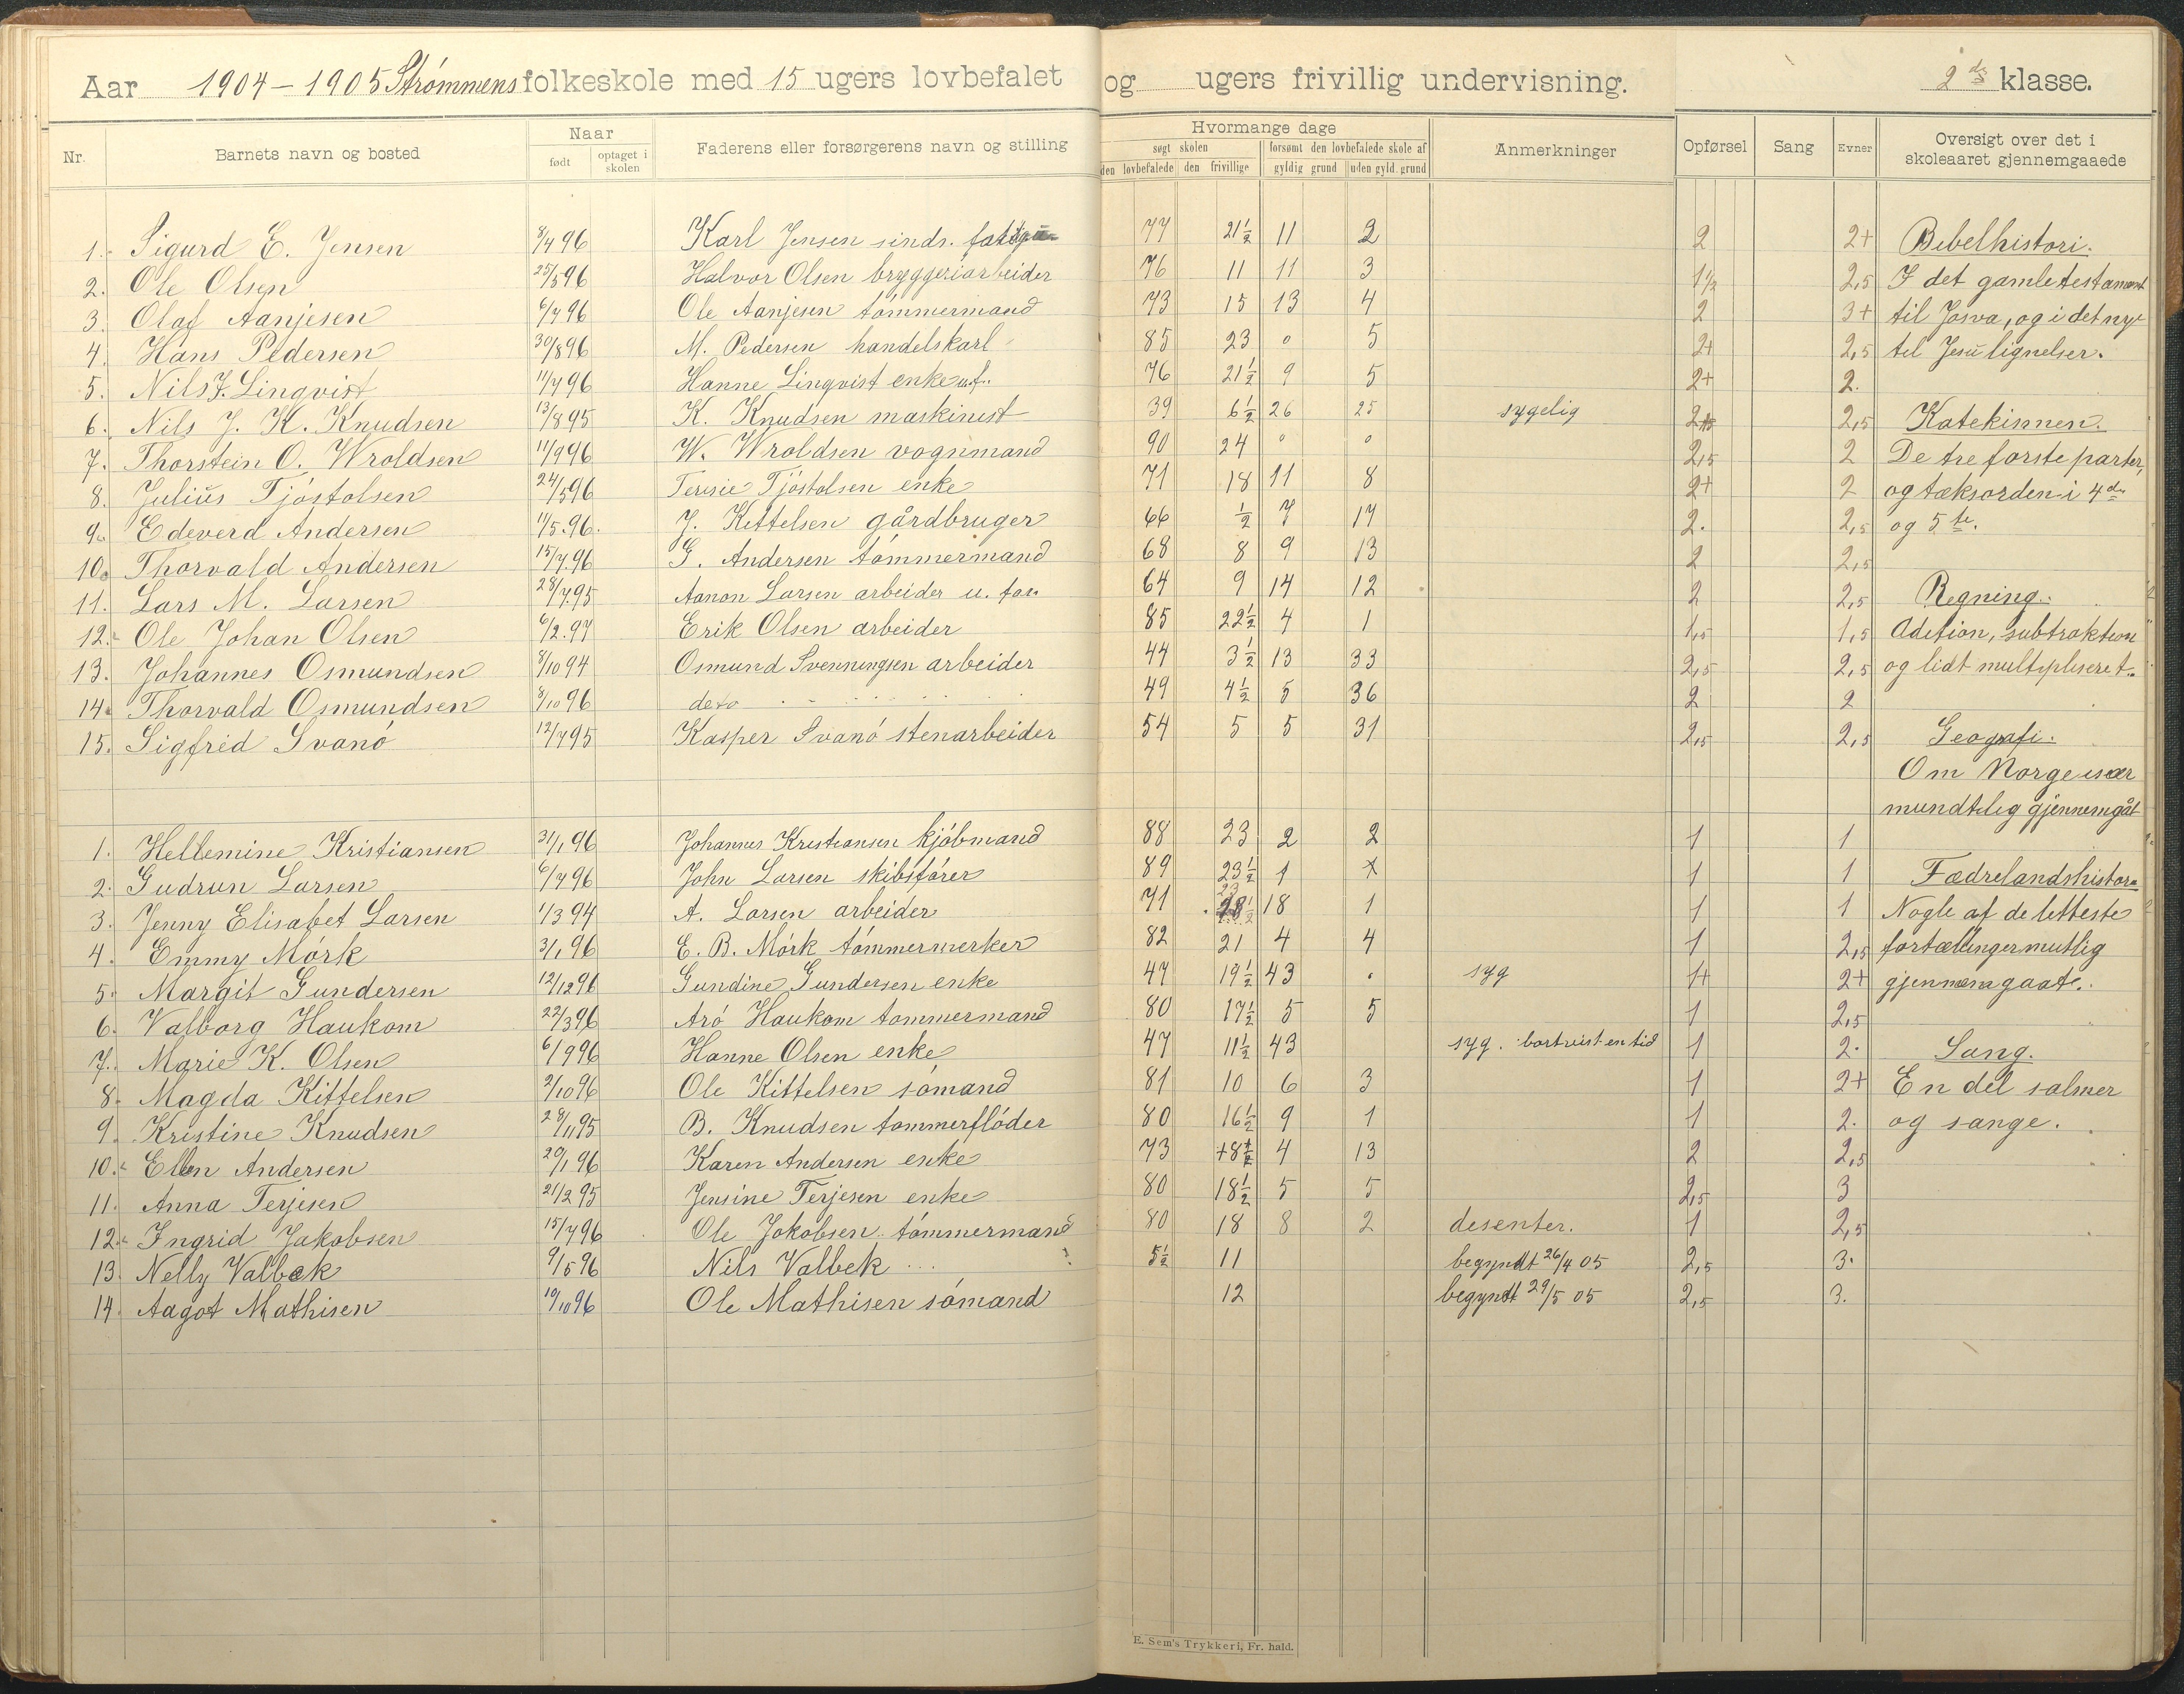 Aar 1904-1905 Strømmens folkeskole med 15 ugers lovbefalet og ugers frivillig undervisning. 2de klasse.
Nr. Barnets navn og bosted Naar født optaget i skolen Faderens eller forsørgerens navn og stilling Hvormange dage søgt skolen den lovbefalede den frivillige forsømt den lovbefalede skole af gyldig grund uden gyld. grund Anmerkninger Opførsel Sang Evner Oversigt over det i skoleaaret gjennemgaaede
1. Sigurd E. Jensen 8/4 96 Karl Jensen sinds. 77 21½ 11 2 2 2+ Bibelhistori.
2. Ole Olsen 25/5 96 Halvor Olsen bryggeriarbeider 76 11 11 3 1½ 2,5 I det gamle testament
3. Olaf Aanjesen 6/7 96 Ole Aanjesen tömmermand 73 15 13 4 2 3+ til Josva, og i det nye
4. Hans Pedersen 30/8 96 M. Pedersen handelskarl 85 23 0 5 2+ 2,5 til Jesu lignelser.
5. Nils F. Linqvist 11/7 96 Hanne Linqvist enke u.f. 76 21½ 9 5 2+ 2.
6. Nils J. K. Knudsen 13/8 95 K. Knudsen maskinist 39 6½ 26 25 sygelig 2,5 2,5 Katekismen.
7. Thorstein O. Wroldsen 11/9 96 W. Wroldsen vognmand 90 24 0 0 2,5 2 De tre forste parter,
8. Julius Tjöstolsen 24/5 96 Teresie Tjöstolsen enke 71 18 11 8 2+ 2 og tæksorden i 4de
9. Edeverd Andersen 11/5.96. J. Kettelsen gårdbruger 66 ½ 7 17 2. 2,5 og 5te.
10. Thorvald Andersen 15/7.96 G. Andersen tömmermand 68 8 9 13 2 2,5
11. Lars M. Larsen 28/7.95 Aanon Larsen arbeider u. fan 64 9 14 12 2 2,5 Regning.
12. Ole Johan Olsen 6/2.97 Erik Olsen arbeider 85 22½ 4 1 1,5 1,5 Adition, subtraktion
13. Johannes Osmundsen 8/10 94 Osmund Svenningsen arbeider 44 3½ 13 33 2,5 2,5 og lidt multipliseret.
14. Thorvald Osmundsen 8/10 96 deto 49 4½ 5 36 2 2
15. Sigfred Svanö 12/7 95 Kasper Svanö stenarbeider 54 5 5 31 2,5 2,5 Geografi.
Om Norge især
mundtlig gjennemgåt
1. Hellemine Kristiansen 31/1 96 Johannes Kristiansen kjöbmand 88 23 2 2 1 1
2. Gudrun Larsen 6/7 96 John Larsen skibsförer 89 23½ 1 1 1 Fædrelandshistorie
3. Jenny Elisabet Larsen 1/3 94 A. Larsen arbeider 71 23 18 1 1 1 Nogle af de letteste
4. Emmy Mörk 3/1 96 E. B. Mörk tömmermerker 82 21 4 4 1 2,5 fortællinger mutlig
5. Margit Gundersen 12/12 96 Gundine Gundersen enke 47 19½ 43 . syg 1+ 2+ gjennemgaate.
6. Valborg Haukom 22/3 96 Arö Haukom tommermand 80 17½ 5 5 1 2,5
7. Marie K. Olsen 6/9 96 Hanne Olsen enke 47 11½ 43 syg. bortreist en tid 1 2. Sang.
8. Magda Kittelsen 2/10 96 Ole Kittelsen sömand 81 10 6 3 1 2+ En del salmer
9. Kristine Knudsen 28/11 95 B. Knudsen tommerflöder 80 16½ 9 1 1 2. og sange.
10. Ellen Andersen 20/1 96 Karen Andersen enke 73 18½ 4 13 2 2,5
11. Anna Terjesen 21/2 95 Jensine Terjesen enke 80 18½ 5 5 2,5 3
12. Ingrid Jakobsen 15/7 96 Ole Jakobsen tömmermand 80 18 8 2 desenter. 1 2,5
13. Nelly Valbek 9/5 96 Nils Valbek 5½ 11 begyndt 26/4 05 2,5 3.
14. Aagot Mathisen 19/10 96 Ole Mathisen sömand 12 begyndt 29/5 05 2,5 3.
E. Sem's Trykkeri, Fr. hald.